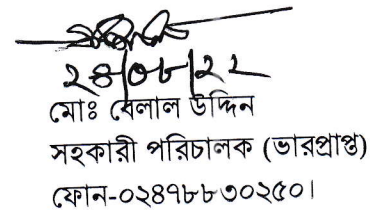 ২৪/০৮/২২
মোঃ বেলাল উদ্দিন
সহকারী পরিচালক (ভারপ্রাপ্ত)
ফোন-০২৪৭৮৮৩০২৫০।